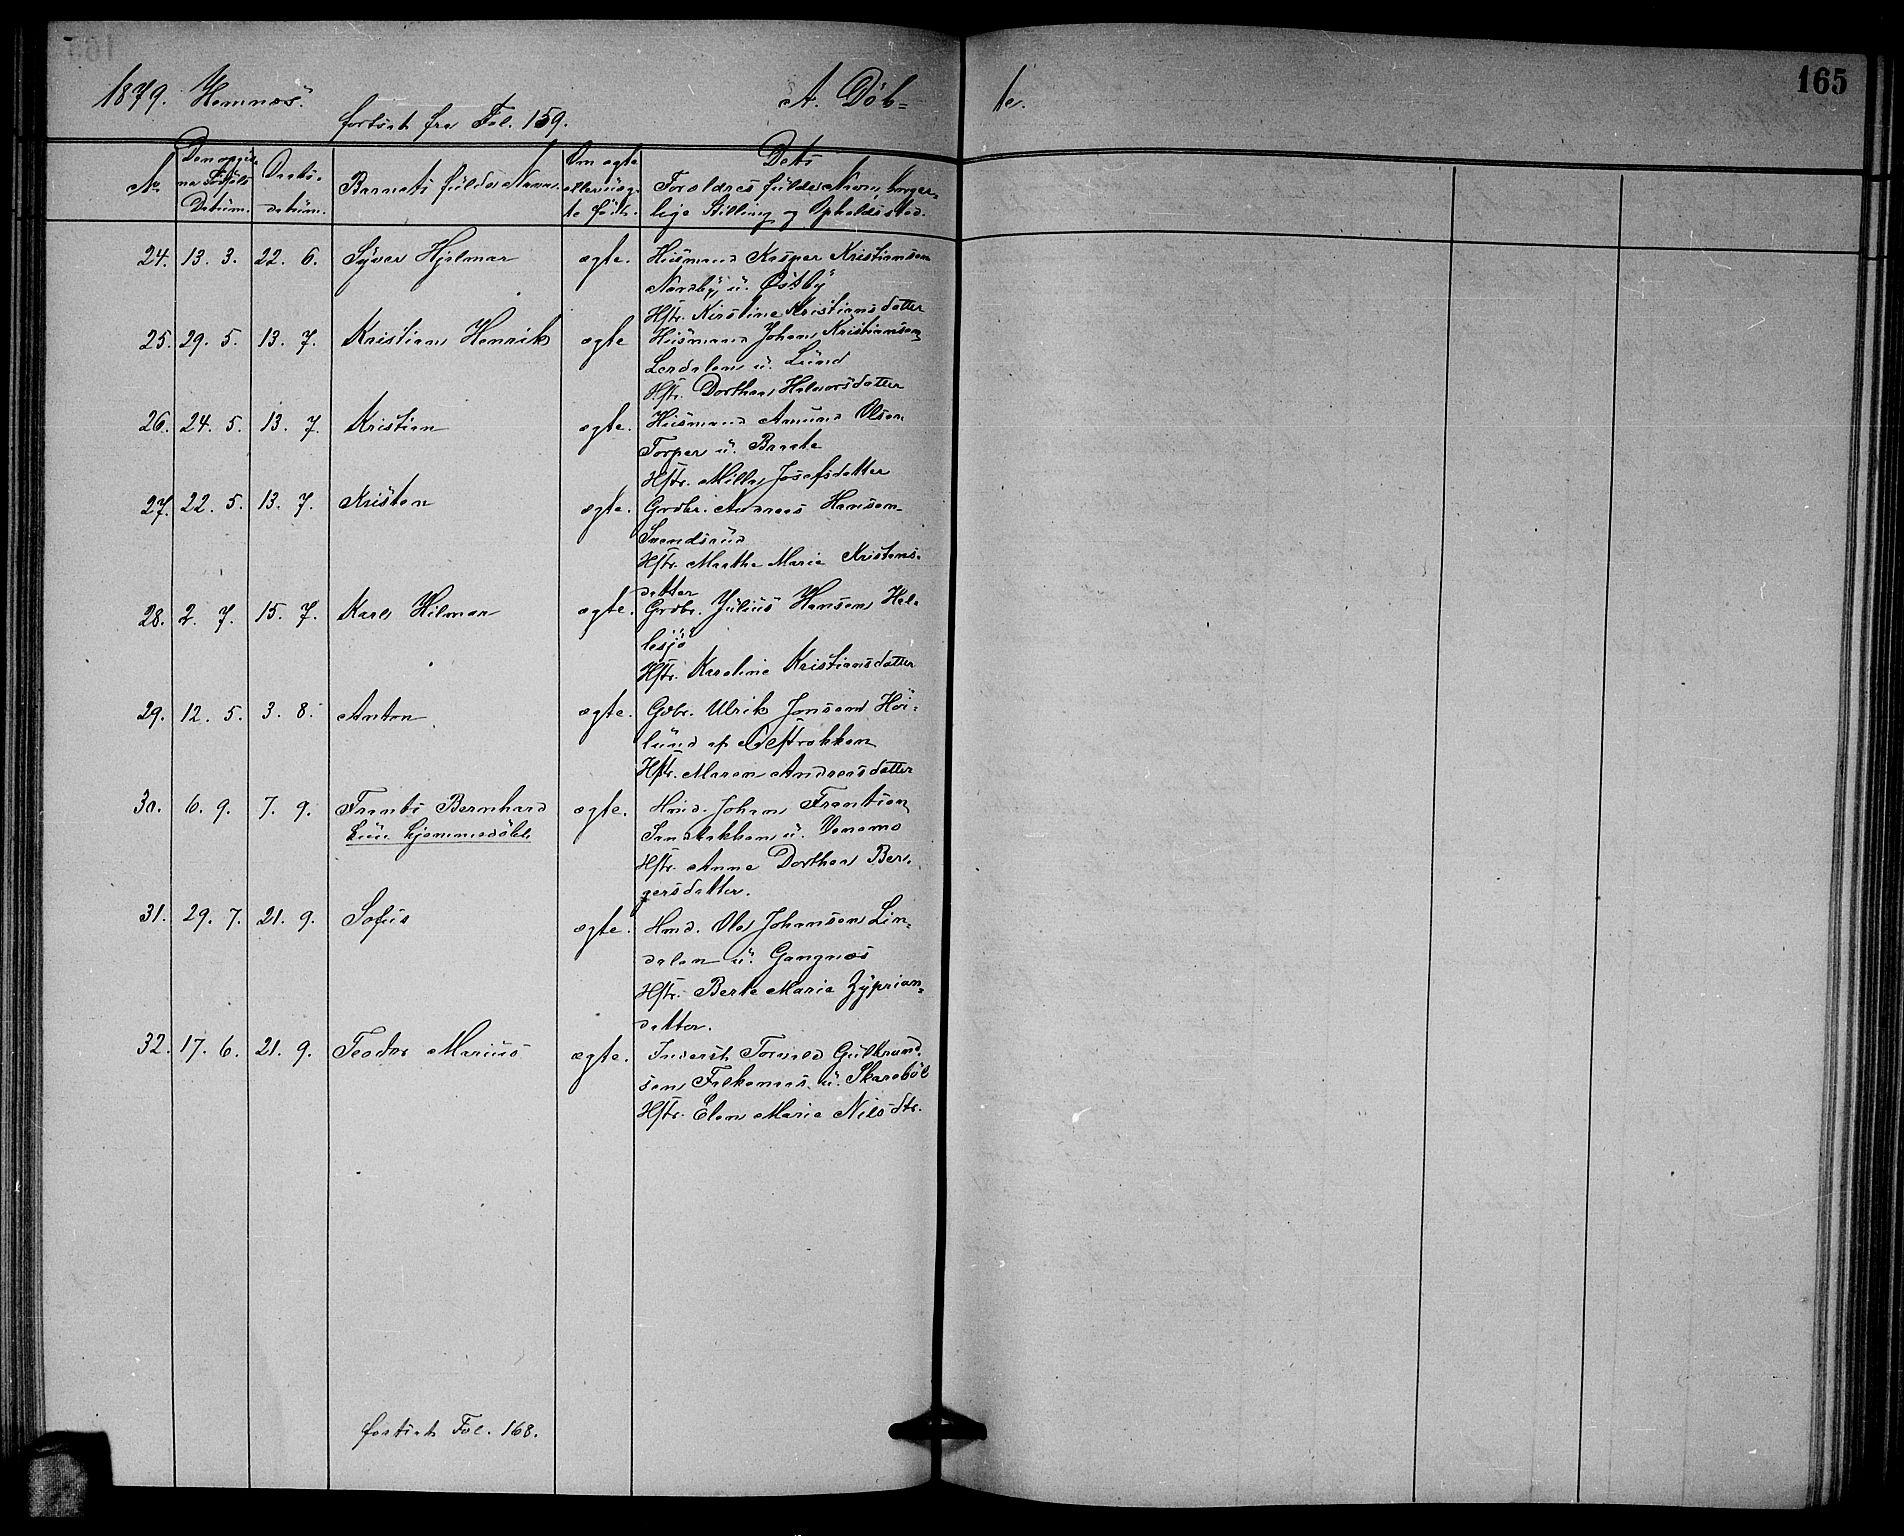 165
1879. Hemnæs. A. Døb= te.
fortsat fra Fol. 159.
No Den opgivne Fødsels Datum. Daabs- datum. Barnets fulde Navn. Om ægte eller uægte født. Dets Forældres fulde Navn, borgerlige Stilling og Opholdssted.
24. 13. 3. 22. 6. Syver Hjalmar ægte. Husmand Kasper Kristiansen
Nordby u. Østby
Hstr. Kirstine Kristiansdatter
25. 29. 5. 13. 7. Kristian Henrik ægte Husmand Johan Kristiansen
Lerdalen u. Lund
Hstr. Dorthea Halvorsdatter
26. 24. 5. 13. 7. Kristian ægte. Husmand Amund Olsen
Torper u. Braate
Hstr. Milla Josefsdatter
27. 22. 5. 13. 7. Kristen ægte. Grdbr. Andreas Hansen
Svendsrud
Hstr. Marthe Marie Kristens-
datter
28. 2. 7. 15. 7. Karl Hilmar ægte. Grdbr. Julius Hansen Hal-
lesjø
Hstr. Karoline Kristiansdatter
29. 12. 5. 3. 8. Anton ægte. Gdbr. Ulrik Jonsen Høi-
lund af
Hstr. Maren Andreasdatter
30. 6. 9. 7. 9. Frants Bernhard ægte. Hmd. Johan Frantsen
hjemmedøbt u. Venemo
Hstr. Anne Dorthea Ber-
gersdatter.
31. 29. 7. 21. 9. Sofus ægte. Hmd. Ole Johansen Lin-
dalen u. Gangnæs
Hstr. Berte Maria Zyprian=
datter.
32. 17. 6. 21. 9. Teodor Marius ægte. Inderst Torvald Gulbrand-
sen Falkenæs u. Skarebøl
Hstr. Elen Marie Nilsdtr.
fortsat Fol. 168.